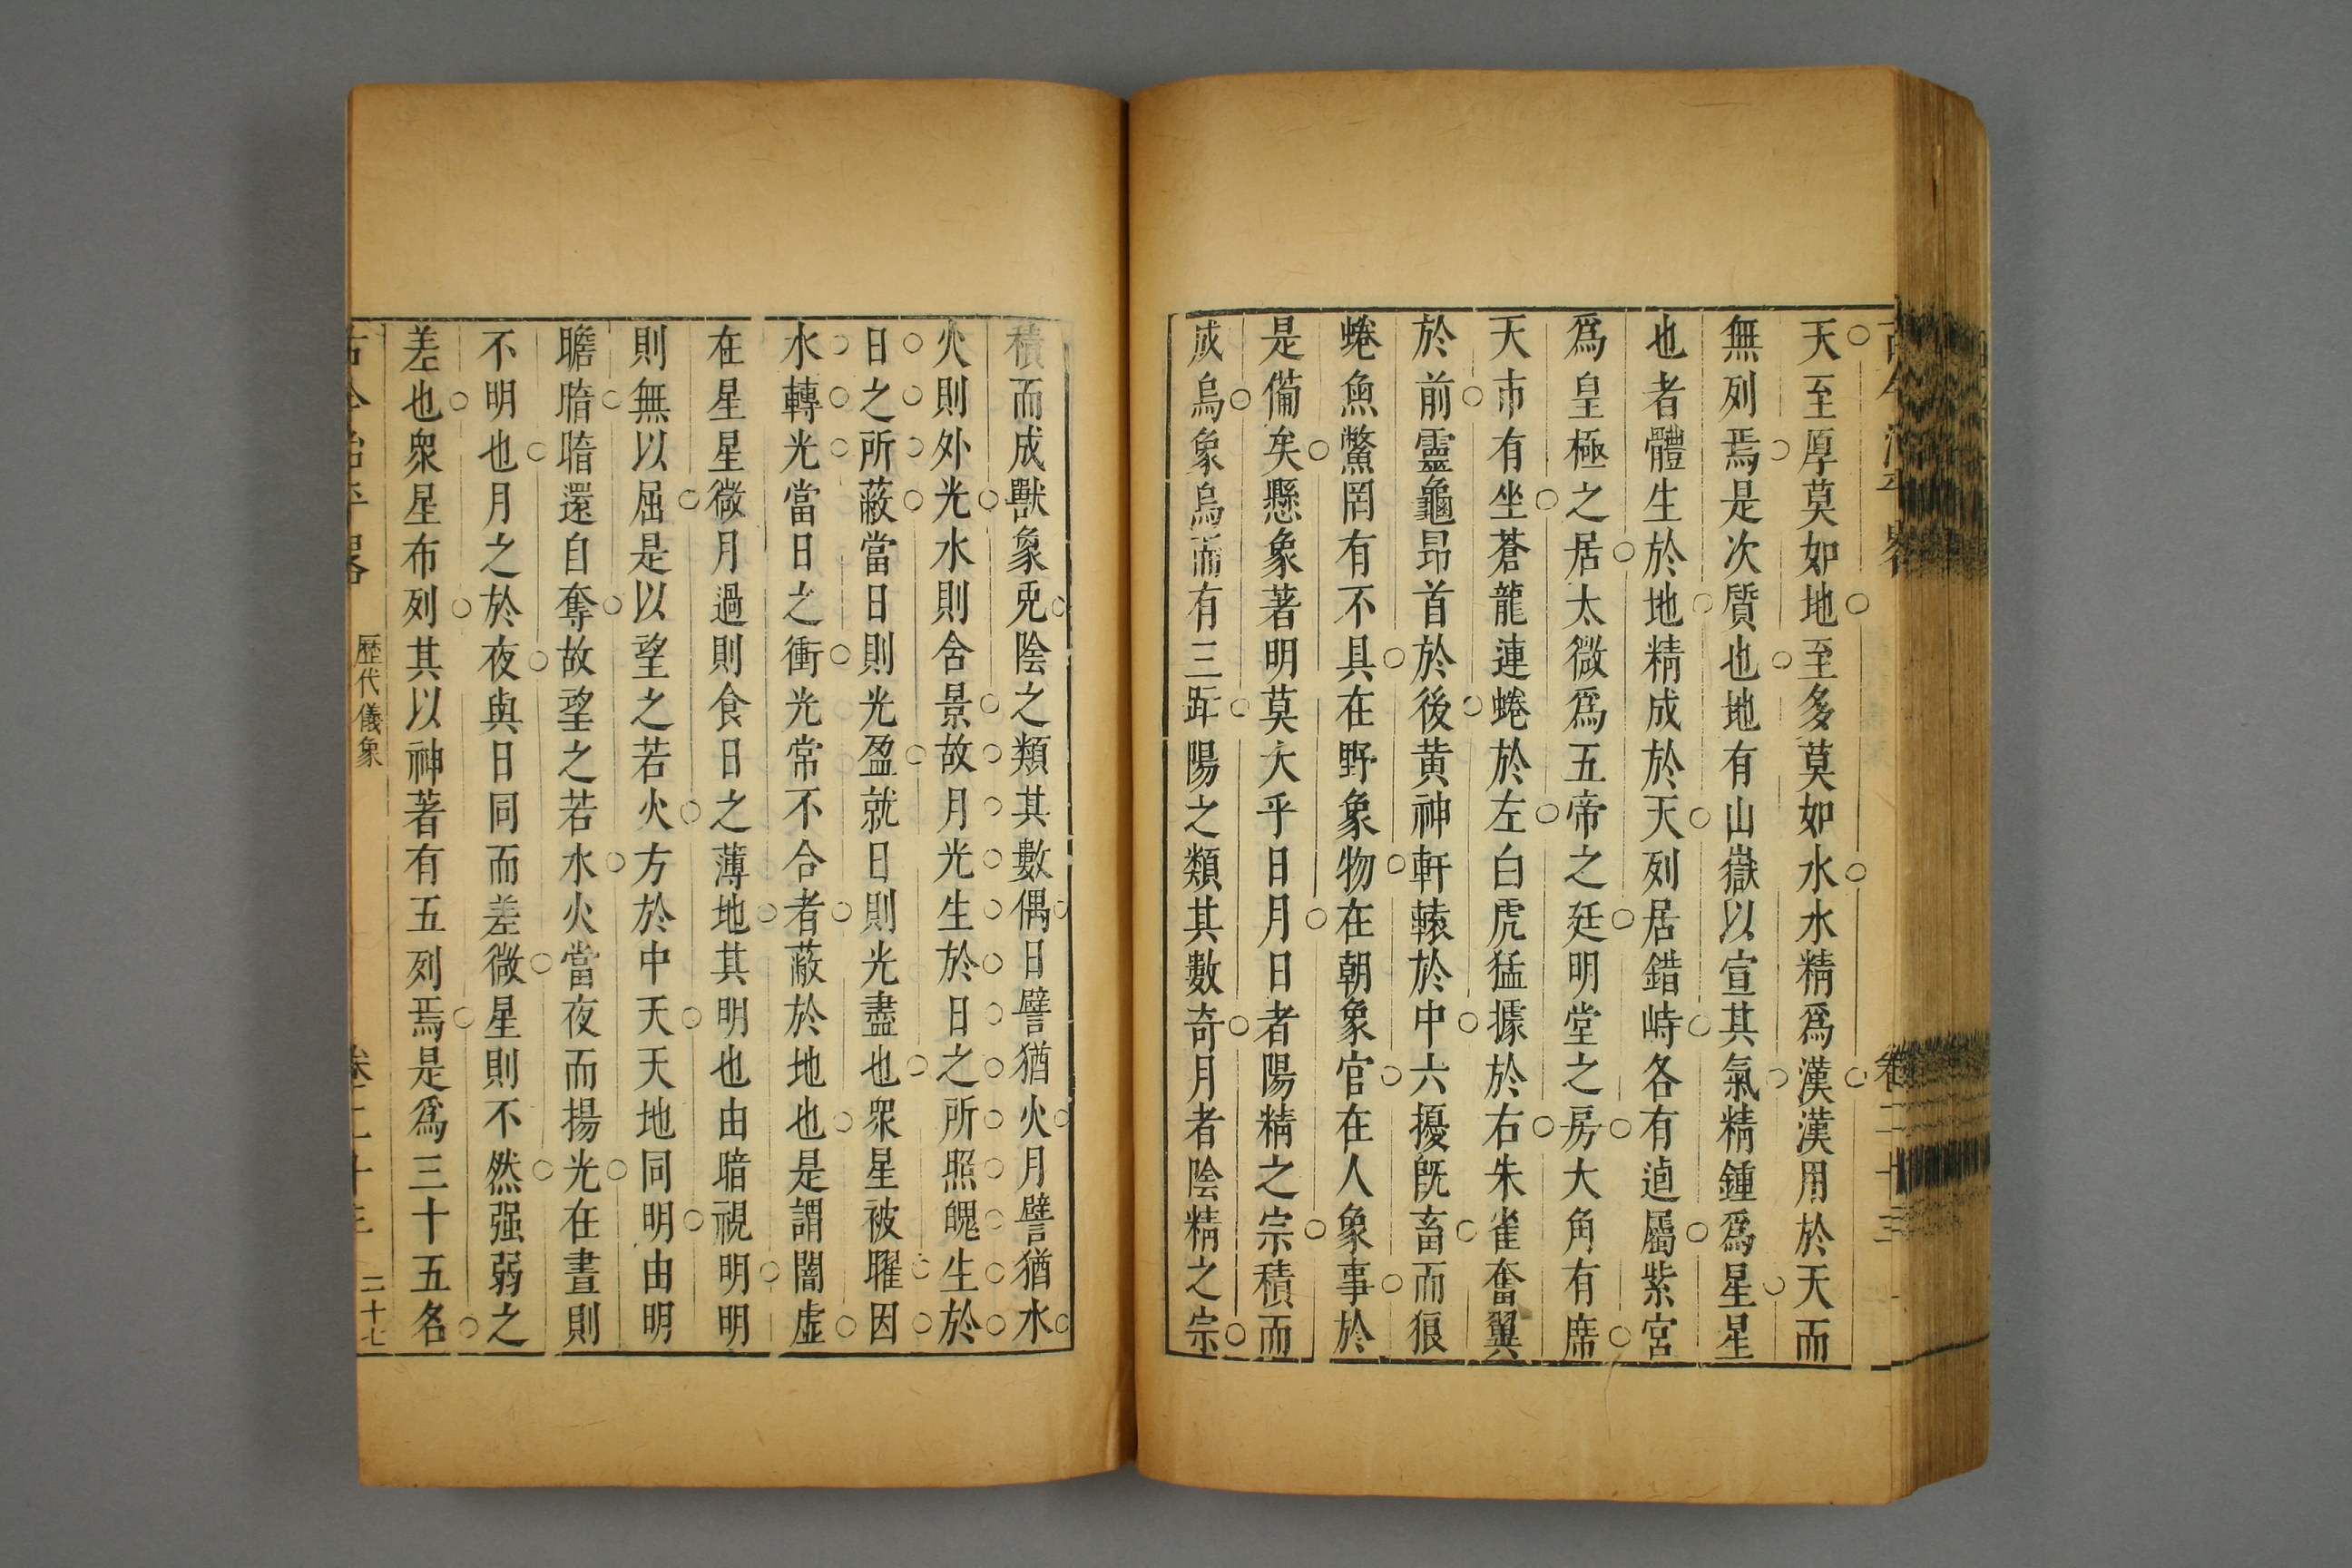 天至厚莫如地至多莫如水水精爲漢漢用於天而
無列焉是次質也地有山嶽以宣其氣精鍾爲星星
也者體生於地精成於天列居錯峙各有逌屬紫宮
爲皇極之居太微爲五帝之廷明堂之房大角有席
天市有坐蒼龍連蜷於左白虎猛據於右朱雀奮翼
於前靈龜昂首於後黄神軒轅於中六擾既畜而狼
蜷魚鱉罔有不具在野象物在朝象官在人象事於
是備矣懸象著明莫大乎日月日者陽精之宗積而
成烏象烏而有三趾陽之類其數奇月者陰精之宗
積而成獸象兎陰之類其數偶日譬猶火月譬猶水
火則外光水則含景故月光生於日之所照魄生於
日之所蔽當日則光盈就日則光盡也衆星被耀因
水轉光當日之衝光常不合者蔽於地也是謂闇虛
在星星微月過則食日之薄地其明也由暗視明明
則無以屈是以望之若火方於中天天地同明由明
瞻暗暗還自奪故望之若水火當夜而揚光在晝則
不明也月之於夜與日同而差微星則不然强弱之
差也衆星布列其以神著有五列焉是爲三十五名
歷代儀象
二十七